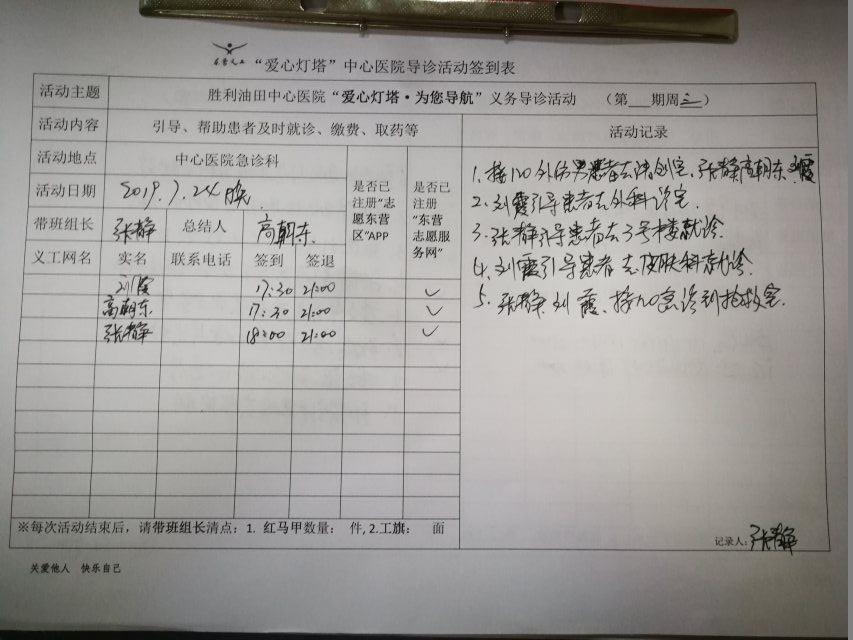 东营义工
“爱心灯塔”中心医院导诊活动签到表
活动主题 胜利油田中心医院“爱心灯塔·为您导航”义务导诊活动 (第__期周三)
活动内容 引导、帮助患者及时就诊、缴费、取药等 活动记录
活动地点 中心医院急诊科 是否已注册“志愿东营区”APP 是否已注册“东营志愿服务网”
活动日期 2019.7.24晚
带班组长 张静 总结人 高朝东
义工网名 实名 联系电话 签到 签退
刘霞 17:30 21:00 ✓
高朝东 17:30 21:00 ✓
张静 18:00 21:00 ✓
1. 接120外伤男患者去清创室、张静高朝东刘霞
2. 刘霞引导患者去外科诊室.
3. 张静引导患者去3号楼就诊.
4. 刘霞引导患者去皮肤科就诊.
5. 张静、刘霞、接120急诊到抢救室.
※每次活动结束后，请带班组长清点：1. 红马甲数量： 件,2.工旗： 面
记录人：张静
关爱他人 快乐自己